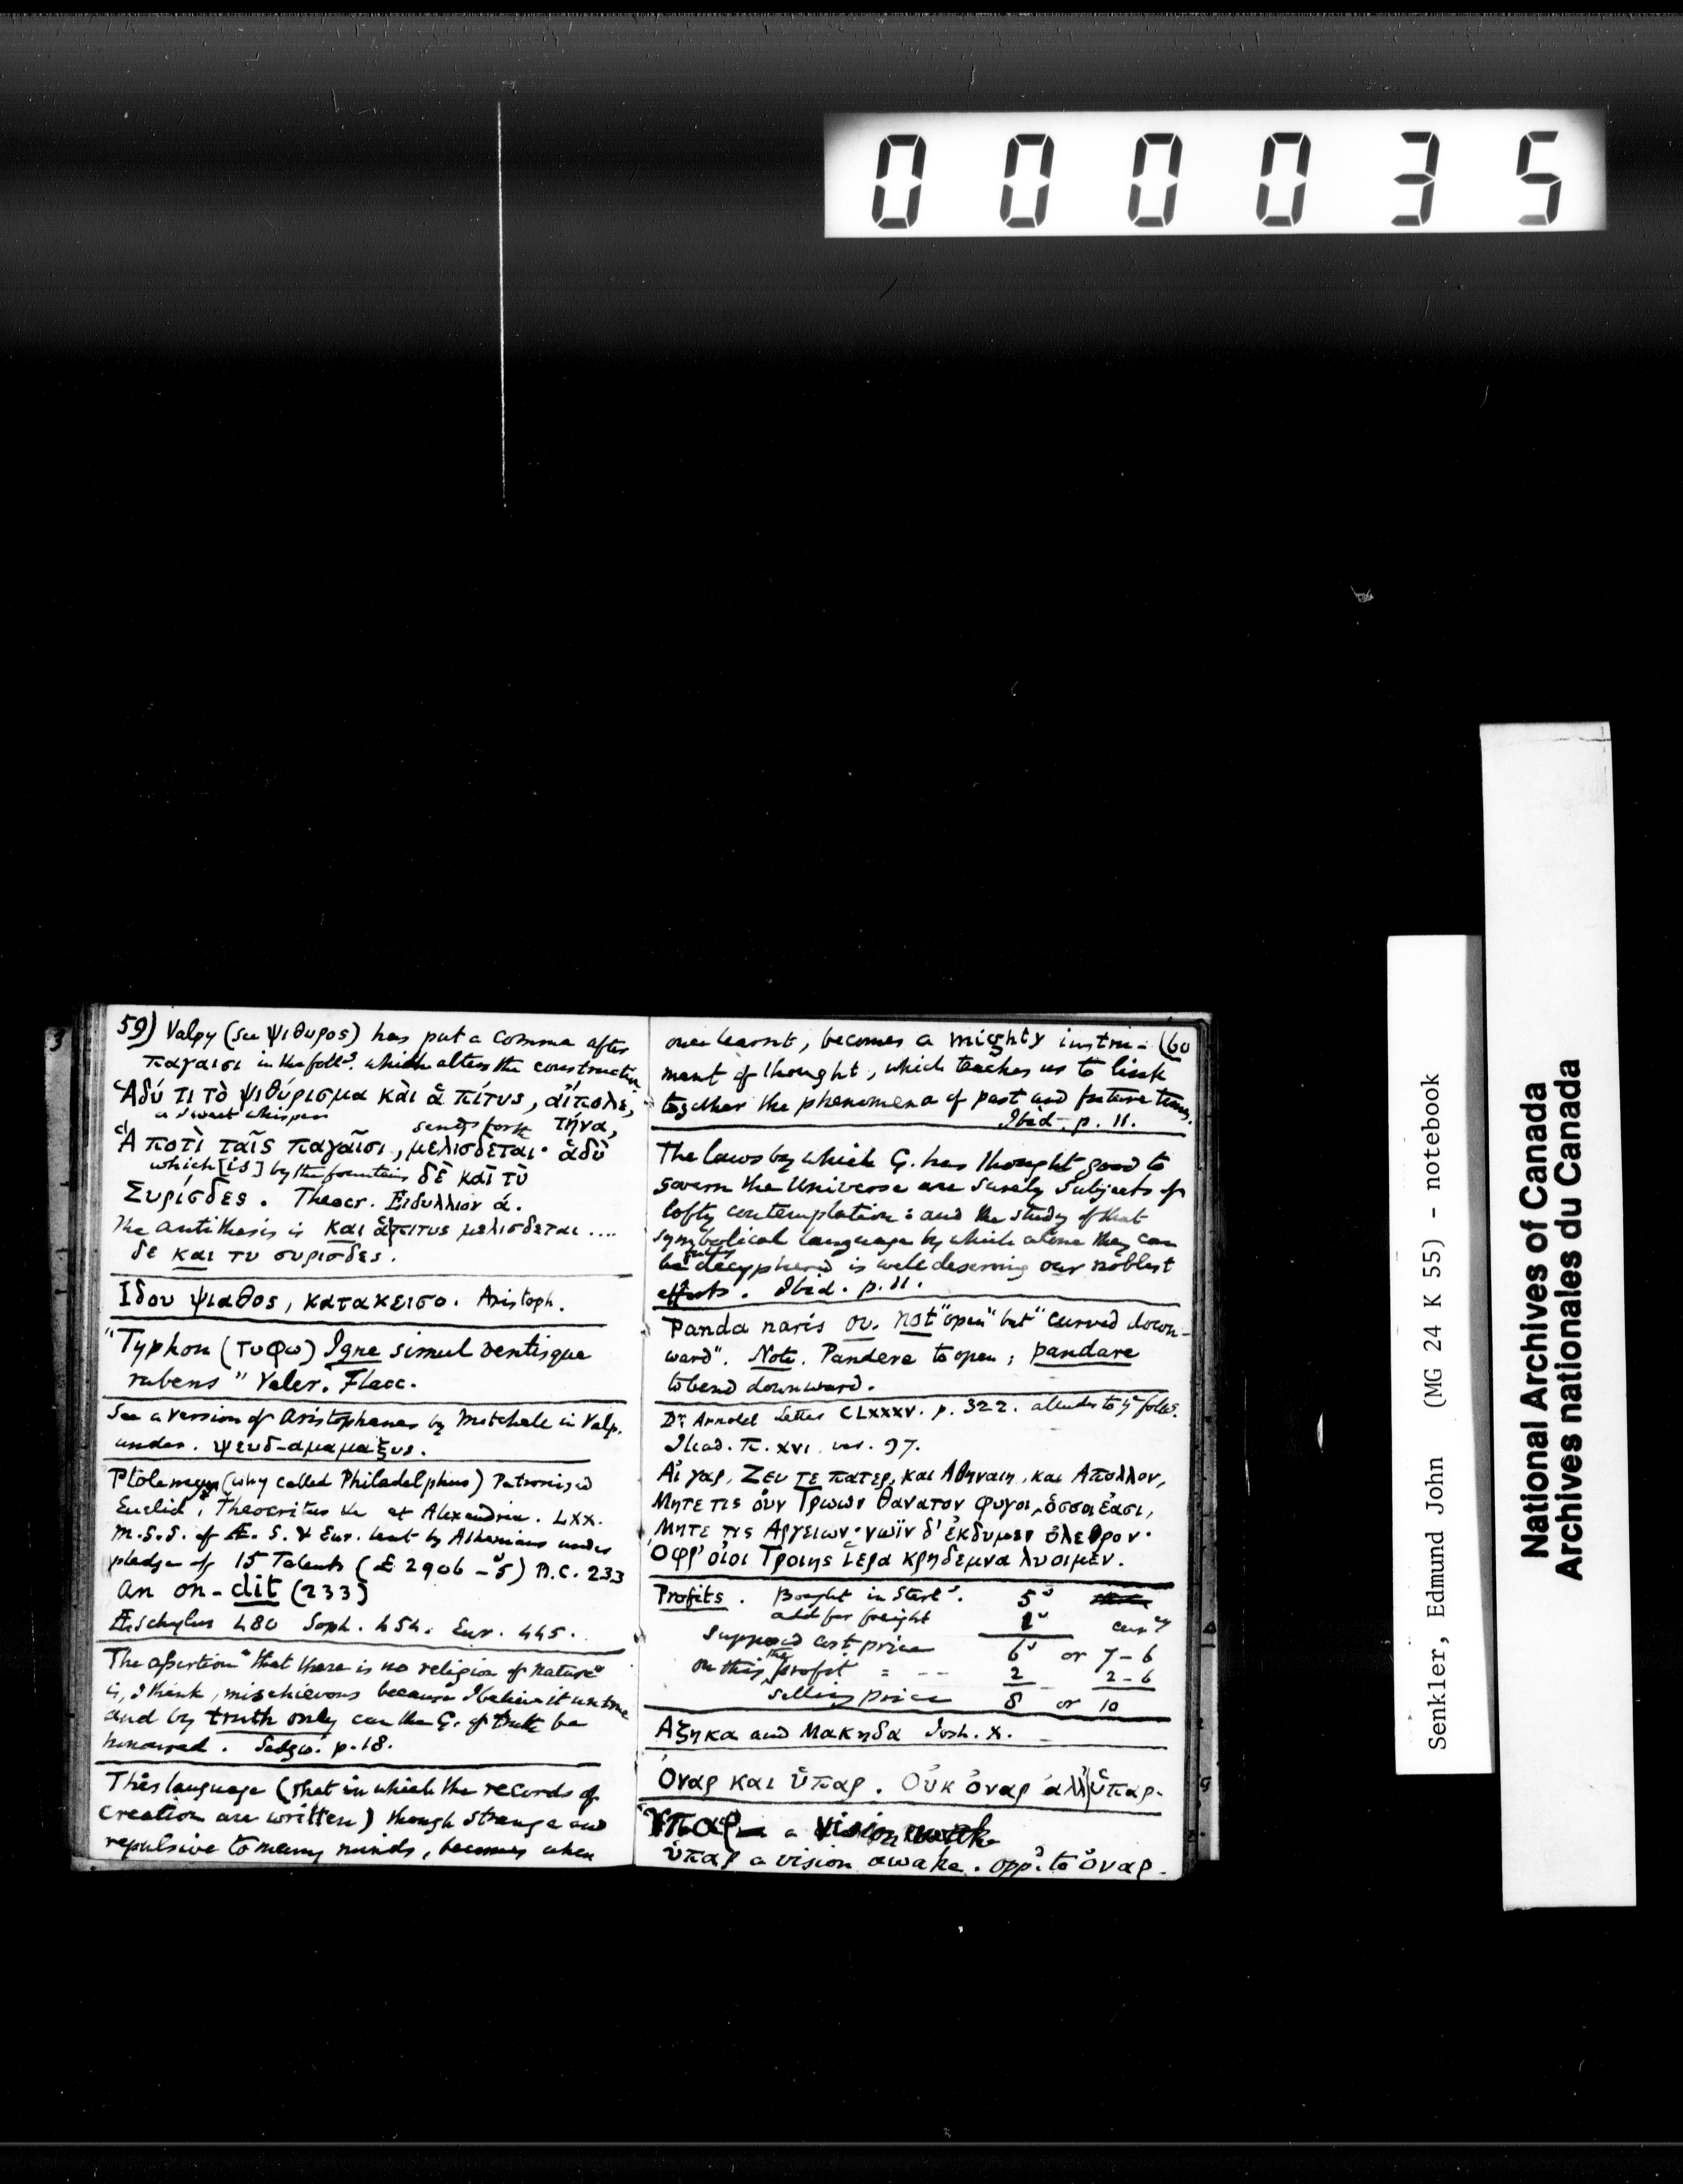 000035
59) Valpy (see ψιθυρος) has put a comma after
παγαισι in the follg. which alters the construction
Ἁδύ τι τὸ ψιθύρισμα καὶ ἁ πίτυς, αἰπόλε,
a sweet whisper sends forth τήνα,
Ἁ ποτὶ ταῖς παγαῖσι, μελίσδεται· ἁδὺ
which [is] by the fountain δὲ καὶ τὺ
Συρίσδες. Theocr. Ειδυλλιον ά.
The antithesis is και ἁ πιτυς μελισδεται ....
δε και τυ συρισδες.
Ιδου ψιαθος, κατακεισο. Aristoph.
"Typhon (τυφω) Igne simul ventisque
rubens" Valer. Flacc.
See a version of Aristophanes by Mitchell in Valp.
under. ψευδ-αμαμαξυς.
Ptolemy (why called Philadelphus) Patronized
Euclid, Theocritus &c at Alexandria. LXX.
M.S.S. of Æ. S. & Eur. lent by Athenians under
pledge of 15 Talents (£2906-5) A.C. 233
An on-dit (233)
Æschylus 480 Soph. 454. Eur. 445.
The assertion "that there is no religion of Nature"
is, I think, mischievous because I believe it untrue
and by truth only can the G. of truth be
honoured. Sedgw. p.18.
This language (that in which the records of
creation are written) though strange and
repulsive to many minds, becomes when
once learnt, becomes a mighty instru- (60
ment of thought, which teaches us to link
together the phenomena of past and future times.
Ibid. p. 11.
The laws by which G. has thought good to
govern the Universe are surely subjects of
lofty contemplation: and the study of that
symbolical language by which alone they can
be decyphered is well deserving our noblest
efforts. Ibid. p.11.
Panda naris ov. not "open" but "curved down-
ward". Note. Pandere to open; pandare
to bend downward.
Dr. Arnold Letter CLXXXV. p. 322. alludes to ye follg.
Iliad. π. XVI. ver. 97.
Αἰ γαρ, Ζευ τε πατερ, και Αθηναιη, και Απολλον,
Μητε τις οὐν Τρωων θανατον φυγοι, ὁσσοι ἐασι,
Μητε τις Αργειων· νωϊν δ' ἐκδυμεν ὀλεθρον·
Ὀφρ' οἰοι Τροιης ἱερα κρηδεμνα λυοιμεν.
Profits. Bought in Sterlg. 5s
add for freight 1s curcy
Supposed cost price 6s or 7-6
on this the profit = -- 2 2-6
Selling price 8 or 10
Αζηκα and Μακηδα Josh. X.
Ὀναρ και ὑπαρ. Οὐκ ὀναρ ἀλλ' ὑπαρ.
Ὑπαρ a vision awake
ὑπαρ a vision awake. oppd. to ὀναρ.
Senkler, Edmund John (MG 24 K 55) - notebook
National Archives of Canada
Archives nationales du Canada